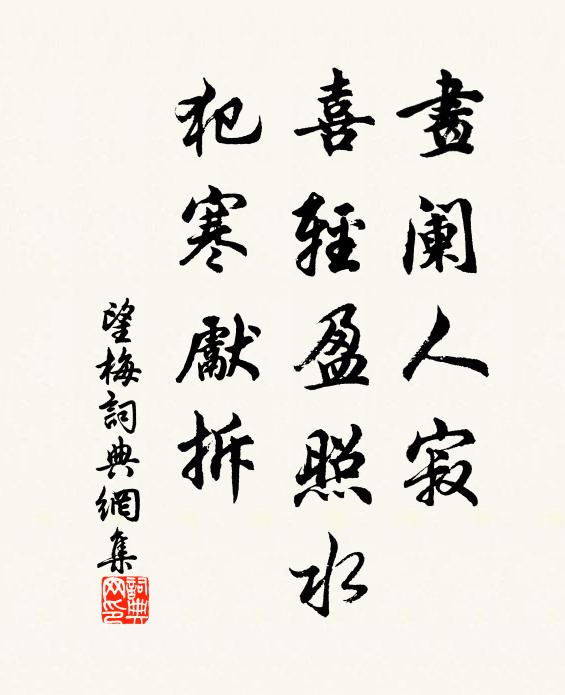 畫闌人寂
喜輕盈照水
犯寒獻拆
望梅詞典網集
詞典
网印